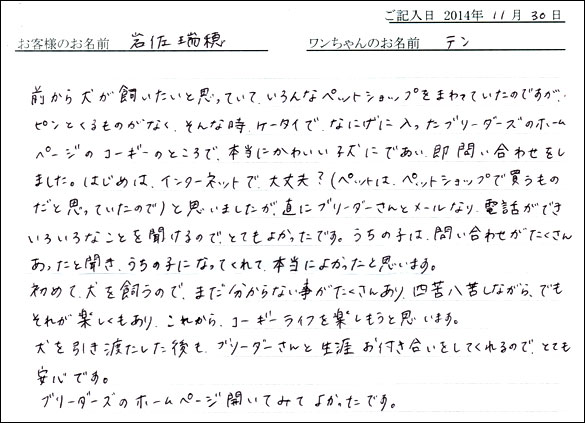 ご記入日 2014年 11月 30日
お客様のお名前 岩佐瑞穂 ワンちゃんのお名前 テン
前から犬が飼いたいと思っていて、いろんなペットショップをまわっていたのですが、
ピンとくるものがなく、そんな時、ケータイで、なにげに入ったブリーダーズのホーム
ページのコーギーのところで、本当にかわいい子犬にであい、即問い合わせをし
ました。はじめは、インターネットで、大丈夫？(ペットは、ペットショップで買うもの
だと思っていたので)と思いましたが、直にブリーダーさんとメールなり、電話ができ
いろいろなことを聞けるので、とてもよかったです。うちの子は、問い合わせがたくさん
あったと聞き、うちの子になってくれて、本当によかったと思います。
初めて、犬を飼うので、まだ分からない事がたくさんあり、四苦八苦しながら、でも
それが楽しくもあり、これから、コーギーライフを楽しもうと思います。
犬を引き渡たした後も、ブリーダーさんと生涯お付き合いをしてくれるので、とても
安心です。
ブリーダーズのホームページ開いてみてよかったです。